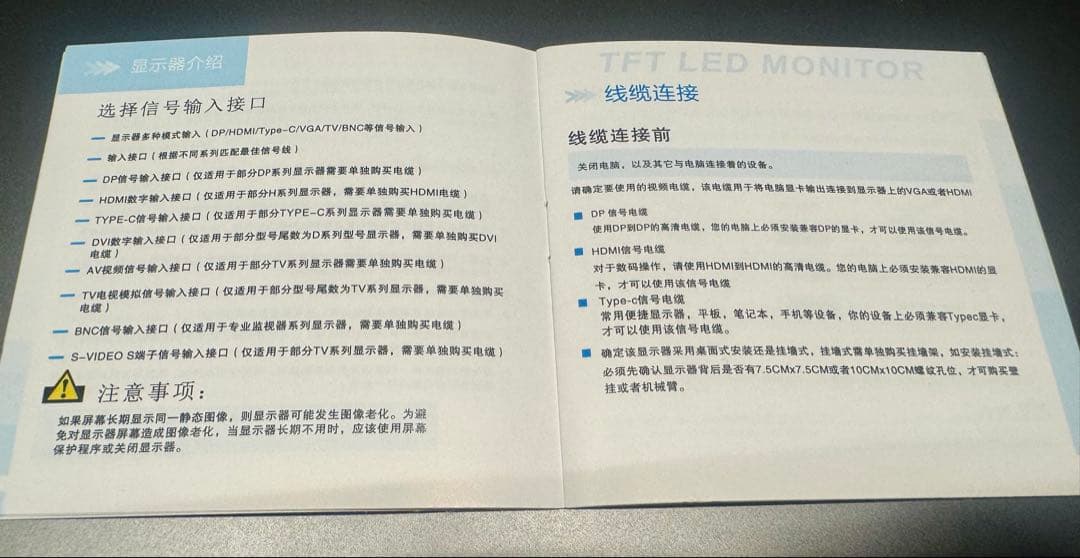 显示器介绍
选择信号输入接口
显示器多种模式输入（DP/HDMI/Type-C/VGA/TV/BNC等信号输入）
输入接口（根据不同系列匹配最佳信号线）
DP信号输入接口（仅适用于部分DP系列显示器需要单独购买电缆）
HDMI数字输入接口（仅适用于部分H系列显示器，需要单独购买HDMI电缆）
TYPE-C信号输入接口（仅适用于部分TYPE-C系列显示器需要单独购买电缆）
DVI数字输入接口（仅适用于部分型号尾数为D系列型号显示器，需要单独购买DVI
电缆）
AV视频信号输入接口（仅适用于部分TV系列显示器需要单独购买电缆）
TV电视模拟信号输入接口（仅适用于部分型号尾数为TV系列显示器，需要单独购买
电缆）
BNC信号输入接口（仅适用于专业监视器系列显示器，需要单独购买电缆）
S-VIDEO S端子信号输入接口（仅适用于部分TV系列显示器，需要单独购买电缆）
注意事项：
如果屏幕长期显示同一静态图像，则显示器可能发生图像老化。为避
免对显示器屏幕造成图像老化，当显示器长期不用时，应该使用屏幕
保护程序或关闭显示器。
TFT LED MONITOR
线缆连接
线缆连接前
关闭电脑，以及其它与电脑连接着的设备。
请确定要使用的视频电缆，该电缆用于将电脑显卡输出连接到显示器上的VGA或者HDMI
DP 信号电缆
使用DP到DP的高清电缆，您的电脑上必须安装兼容DP的显卡，才可以使用该信号电缆。
HDMI信号电缆
对于数码操作，请使用HDMI到HDMI的高清电缆。您的电脑上必须安装兼容HDMI的显
卡，才可以使用该信号电缆
Type-c信号电缆
常用便捷显示器，平板，笔记本，手机等设备，你的设备上必须兼容Typec显卡，
才可以使用该信号电缆。
确定该显示器采用桌面式安装还是挂墙式，挂墙式需单独购买挂墙架，如安装挂墙式：
必须先确认显示器背后是否有7.5CMx7.5CM或者10CMx10CM螺纹孔位，才可购买壁
挂或者机械臂。